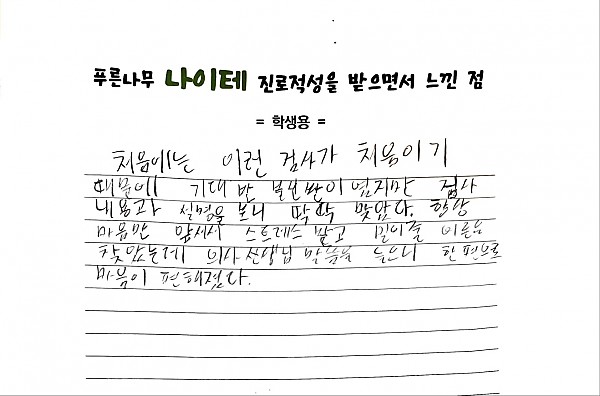 푸른나무 나이테 진로적성을 받으면서 느낀 점
= 학생용 =
처음에는 이런 검사가 처음이기
때문에 기대 반 불안반이 었지만 검사
내용과 설명을 보니 딱딱 맞았다. 항상
마음만 앞서서 스트레스 받고 이유를
찾았는데 의사 선생님 말씀을 들으니 한편으로
마음이 편해졌다.